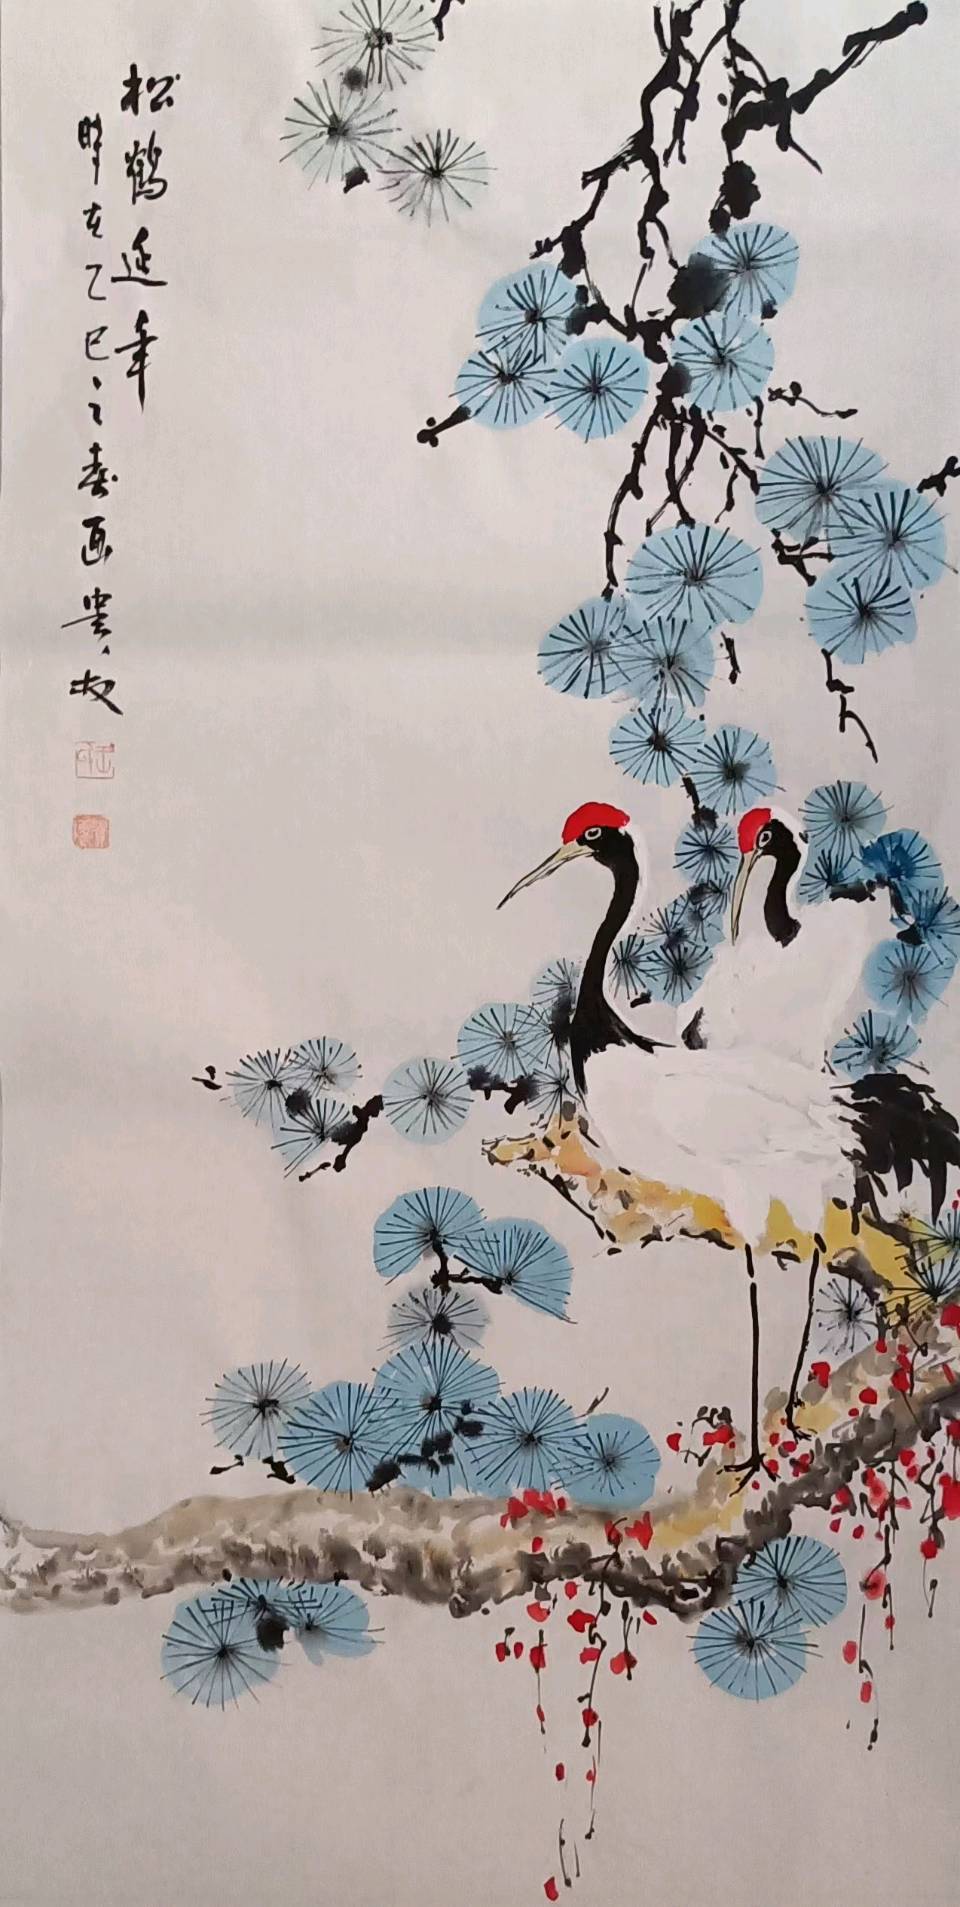 松鹤延年
时在乙巳之春画贵友